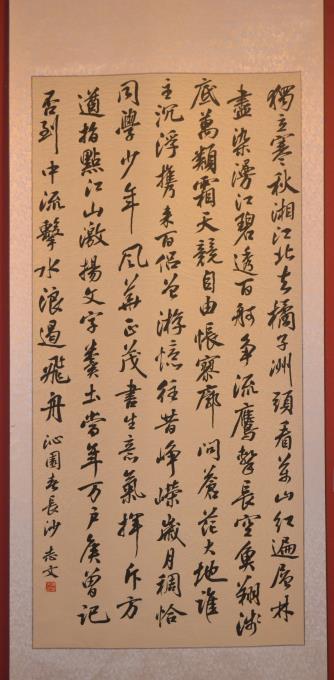 獨立寒秋湘江北去橘子洲頭看萬山紅遍層林
盡染漫江碧透百舸争流鷹擊長空魚翔淺
底萬類霜天競自由悵寥廓問蒼茫大地誰
主沉浮携来百侣曾游憶往昔崢嶸歲月稠恰
同學少年風華正茂書生意氣揮斥方
遒指點江山激揚文字糞土當年万户侯曾記
否到中流擊水浪遏飛舟 沁園春長沙 志文